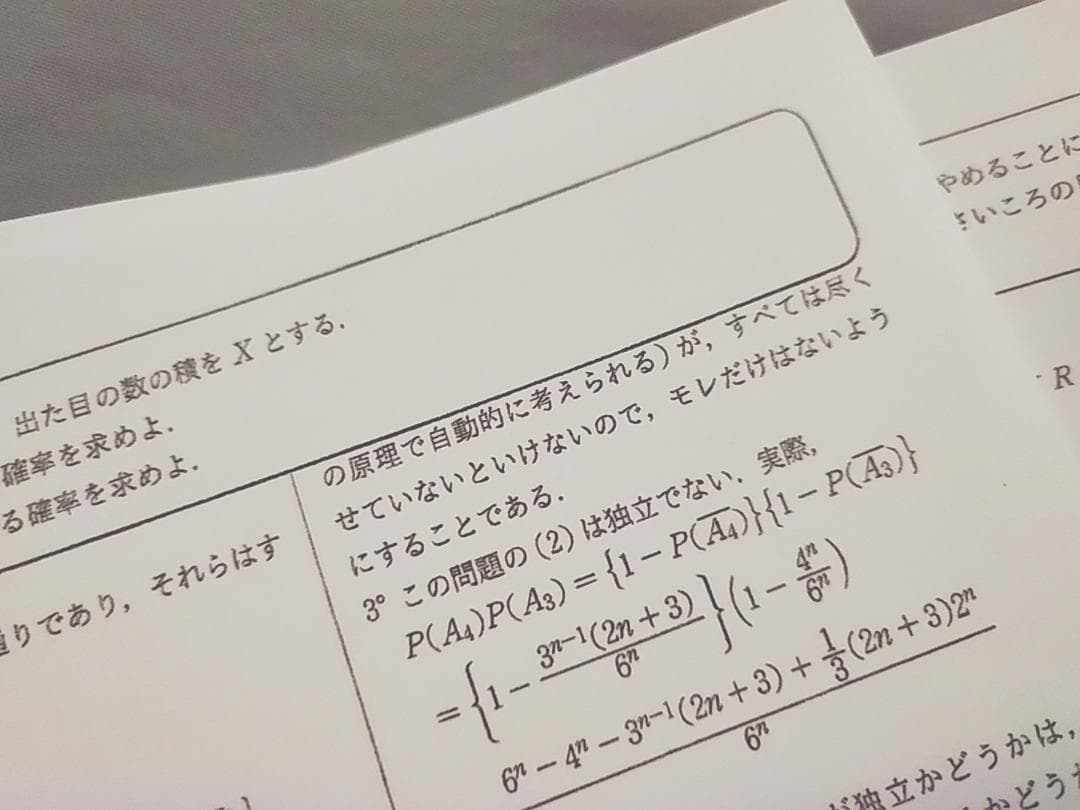 出た目の数の積を X とする.
確率を求めよ.
る確率を求めよ.
りであり, それらはす
の原理で自動的に考えられる) が, すべては尽く
せていないといけないので, モレだけはないよう
にすることである.
3° この問題の (2) は独立でない. 実際,
P(A₄)P(A₃) = {1 − P(\overline{A₄})}{1 − P(\overline{A₃})}
= {1 − \frac{3^{n−1}(2n + 3)}{6^n}}(1 − \frac{4^n}{6^n})
\frac{6^n − 4^n − 3^{n−1}(2n + 3) + \frac{1}{3}(2n + 3)2^n}{6^n}
が独立かどうかは,
かどうか
やめることに
いころの
R